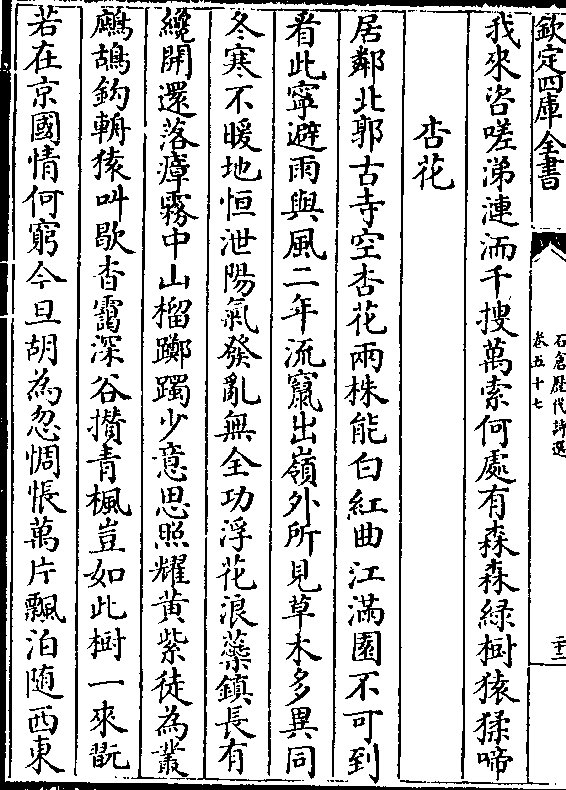 欽定四庫全書
石倉歷代詩選
卷五十七
二十二
我來咨嗟涕漣洏千搜萬索何處有森森緑樹猿猱啼
杏花
居鄰北郭古寺空杏花兩株能白紅曲江滿園不可到
看此寧避雨與風二年流竄出嶺外所見草木多異同
冬寒不暖地恒泄陽氣發亂無全功浮花浪蘂鎮長有
纔開還落瘴霧中山榴躑躅少意思照耀黃紫徒為叢
鷓鴣鈎輈猿叫歇杳靄深谷攢青楓豈如此樹一來翫
若在京國情何窮今旦胡為忽惆悵萬片飄泊隨西東